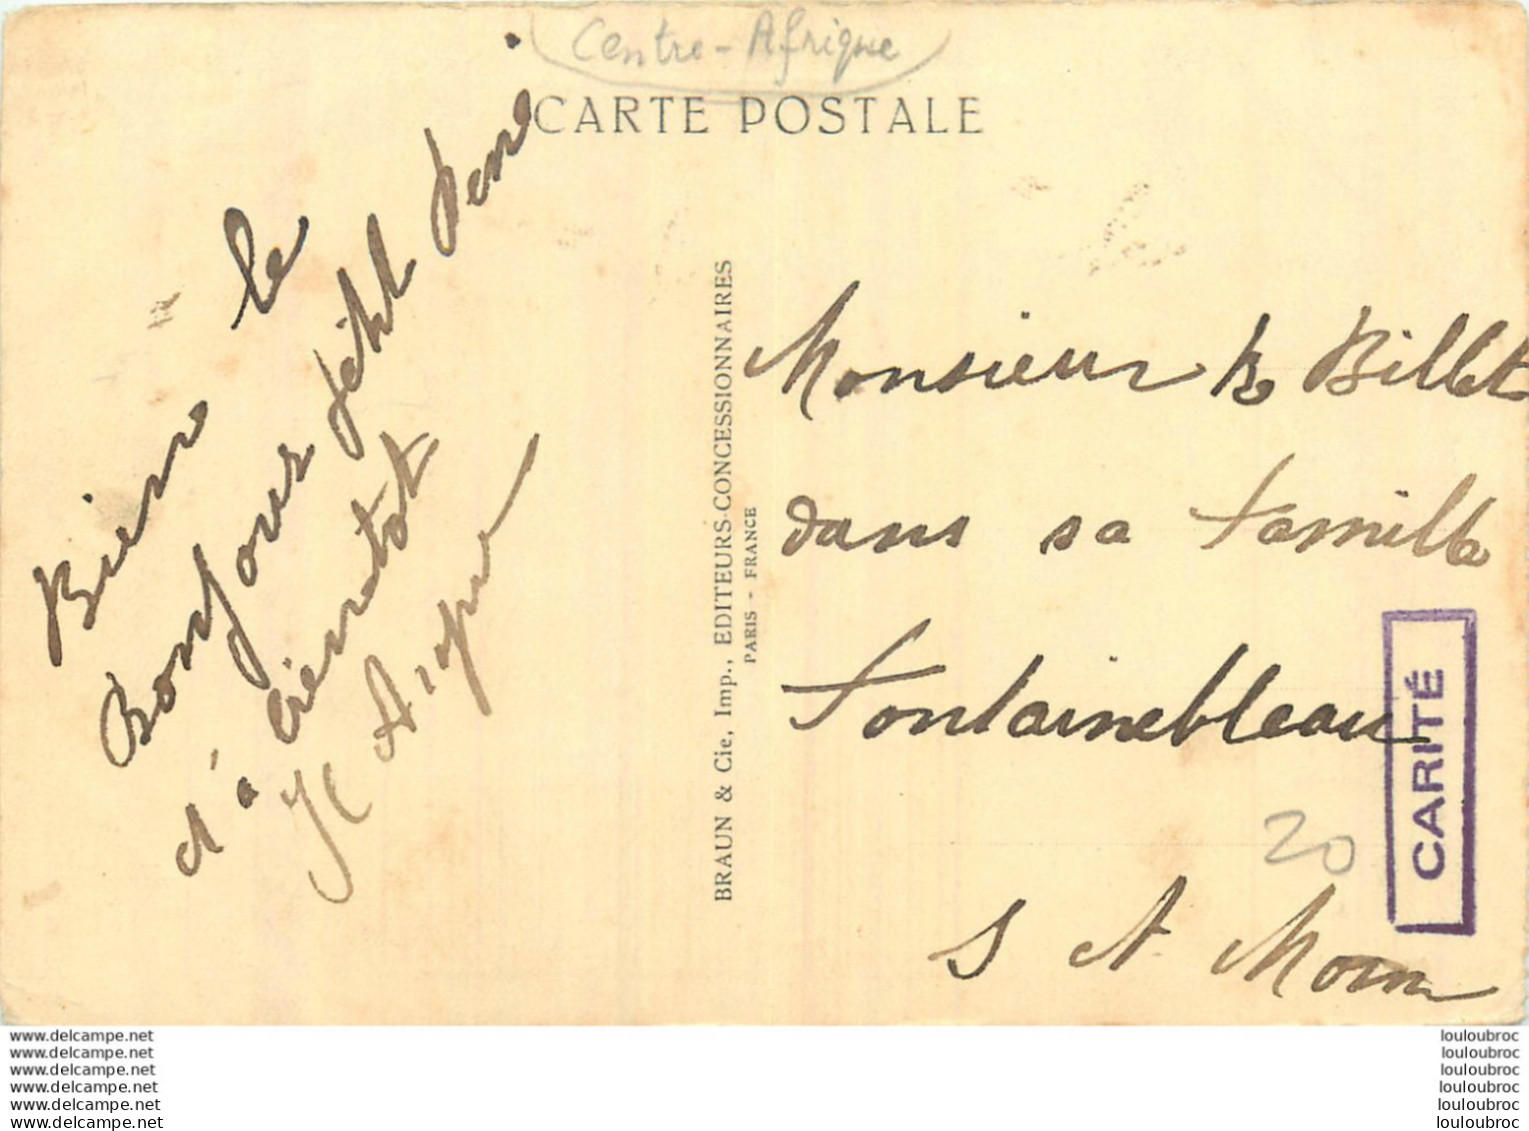 Centre-Afrique
CARTE POSTALE
Bien le
Bonjour petit
d'a
BRAUN & Cie, Imp., EDITEURS-CONCESSIONNAIRES
PARIS - FRANCE
Monsieur Billet
dans sa famille
Fontainebleau
S et Marn
20
CARITÉ
www.delcampe.net
www.delcampe.net
www.delcampe.net
www.delcampe.net
www.delcampe.net
www.delcampe.net
louloubroc
louloubroc
louloubroc
louloubroc
louloubroc
louloubroc